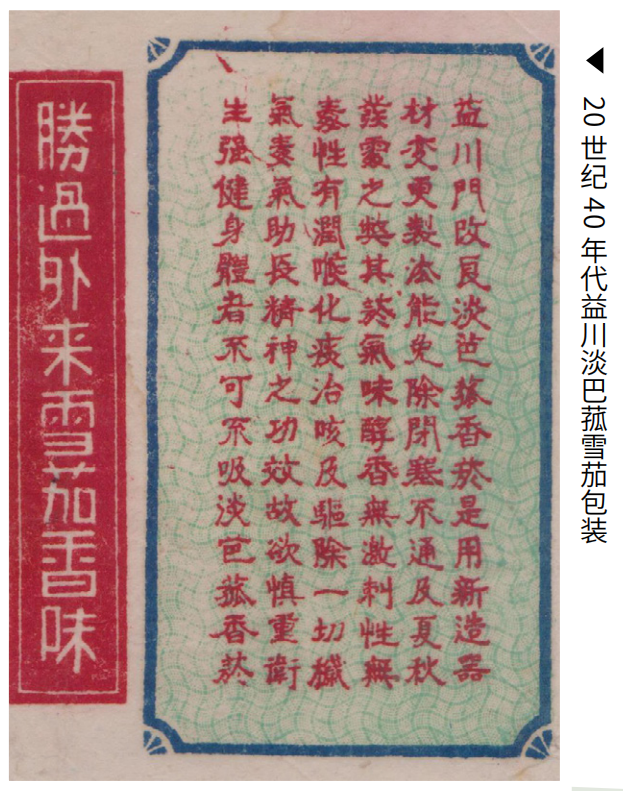 20 世纪 40 年代益川淡巴菰雪茄包装
益川門改良淡芭菰香菸是用新造器
材变更製法能免除閉塞不通及夏秋
發霉之弊其菸氣味醇香無激刺性無
毒性有潤喉化痰治咳及驅除一切穢
氣養氣助長精神之功效故欲慎重衛
生强健身體者不可不吸淡芭菰香菸
勝過外来雪茄香味